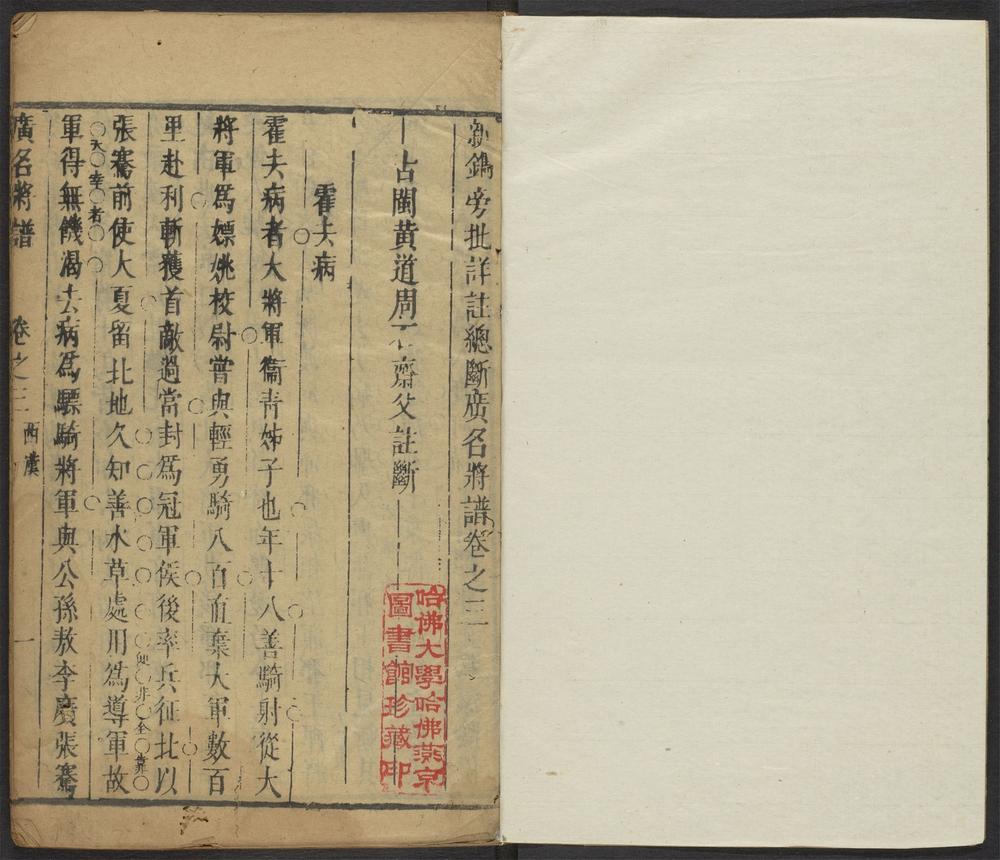 新鐫旁批詳註總斷廣名將譜卷之三
古閩黃道周石齋父註斷
霍去病
霍去病者大將軍衞青姊子也年十八善騎射從大
將軍爲嫖姚校尉嘗與輕勇騎八百直棄大軍數百
里赴利斬獲首敵過當封爲冠軍侯後率兵征北以
張騫前使大夏留北地久知善水草處用爲導軍故
便非全靠
軍得無饑渴去病爲驃騎將軍與公孫敖李廣張騫
天幸者
廣名將譜 卷之三 西漢 一
哈佛大學哈佛燕京
圖書館珍藏印